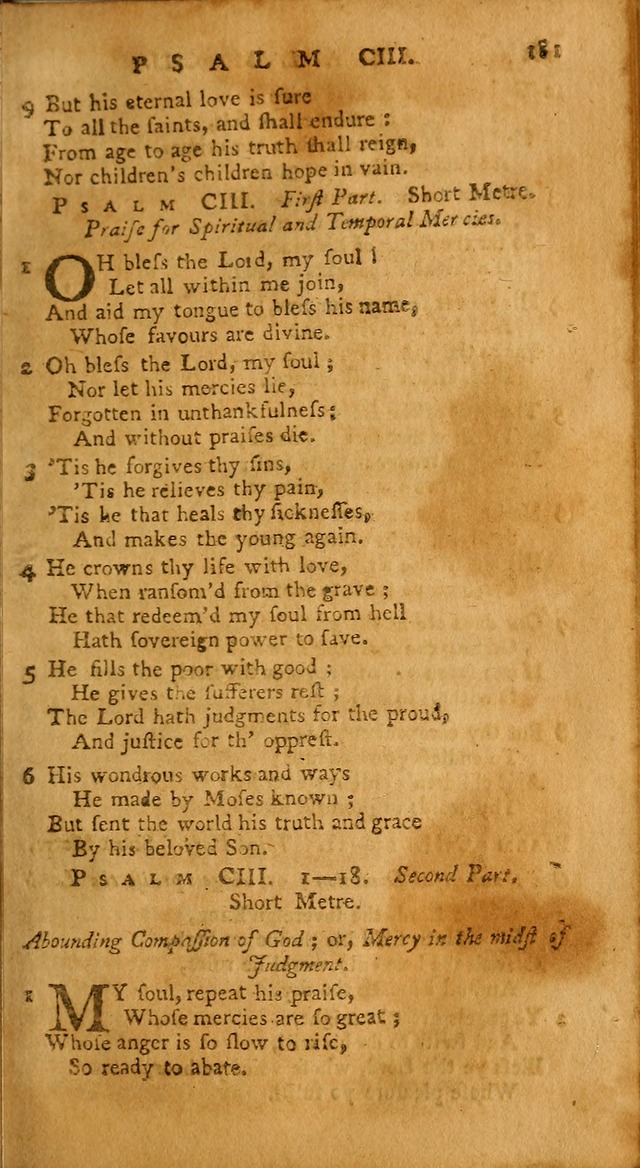 PSALM CIII. 181
9 But his eternal love is ſure
To all the ſaints, and ſhall endure :
From age to age his truth ſhall reign,
Nor children's children hope in vain.
PSALM CIII. Firſt Part. Short Metre.
Praiſe for Spiritual and Temporal Mercies.
1 OH bleſs the Lord, my ſoul !
Let all within me join,
And aid my tongue to bleſs his name,
Whoſe favours are divine.
2 Oh bleſs the Lord, my ſoul ;
Nor let his mercies lie,
Forgotten in unthankfulneſs ;
And without praiſes die.
3 'Tis he forgives thy ſins,
'Tis he relieves thy pain,
'Tis he that heals thy ſickneſſes,
And makes the young again.
4 He crowns thy life with love,
When ranſom'd from the grave ;
He that redeem'd my ſoul from hell
Hath ſovereign power to ſave.
5 He fills the poor with good ;
He gives the ſufferers reſt ;
The Lord hath judgments for the proud,
And juſtice for th' oppreſt.
6 His wondrous works and ways
He made by Moſes known ;
But ſent the world his truth and grace
By his beloved Son.
PSALM CIII. 1—18. Second Part.
Short Metre.
Abounding Compaſſion of God ; or, Mercy in the midſt of
Judgment.
1 MY ſoul, repeat his praiſe,
Whoſe mercies are ſo great ;
Whoſe anger is ſo ſlow to riſe,
So ready to abate.